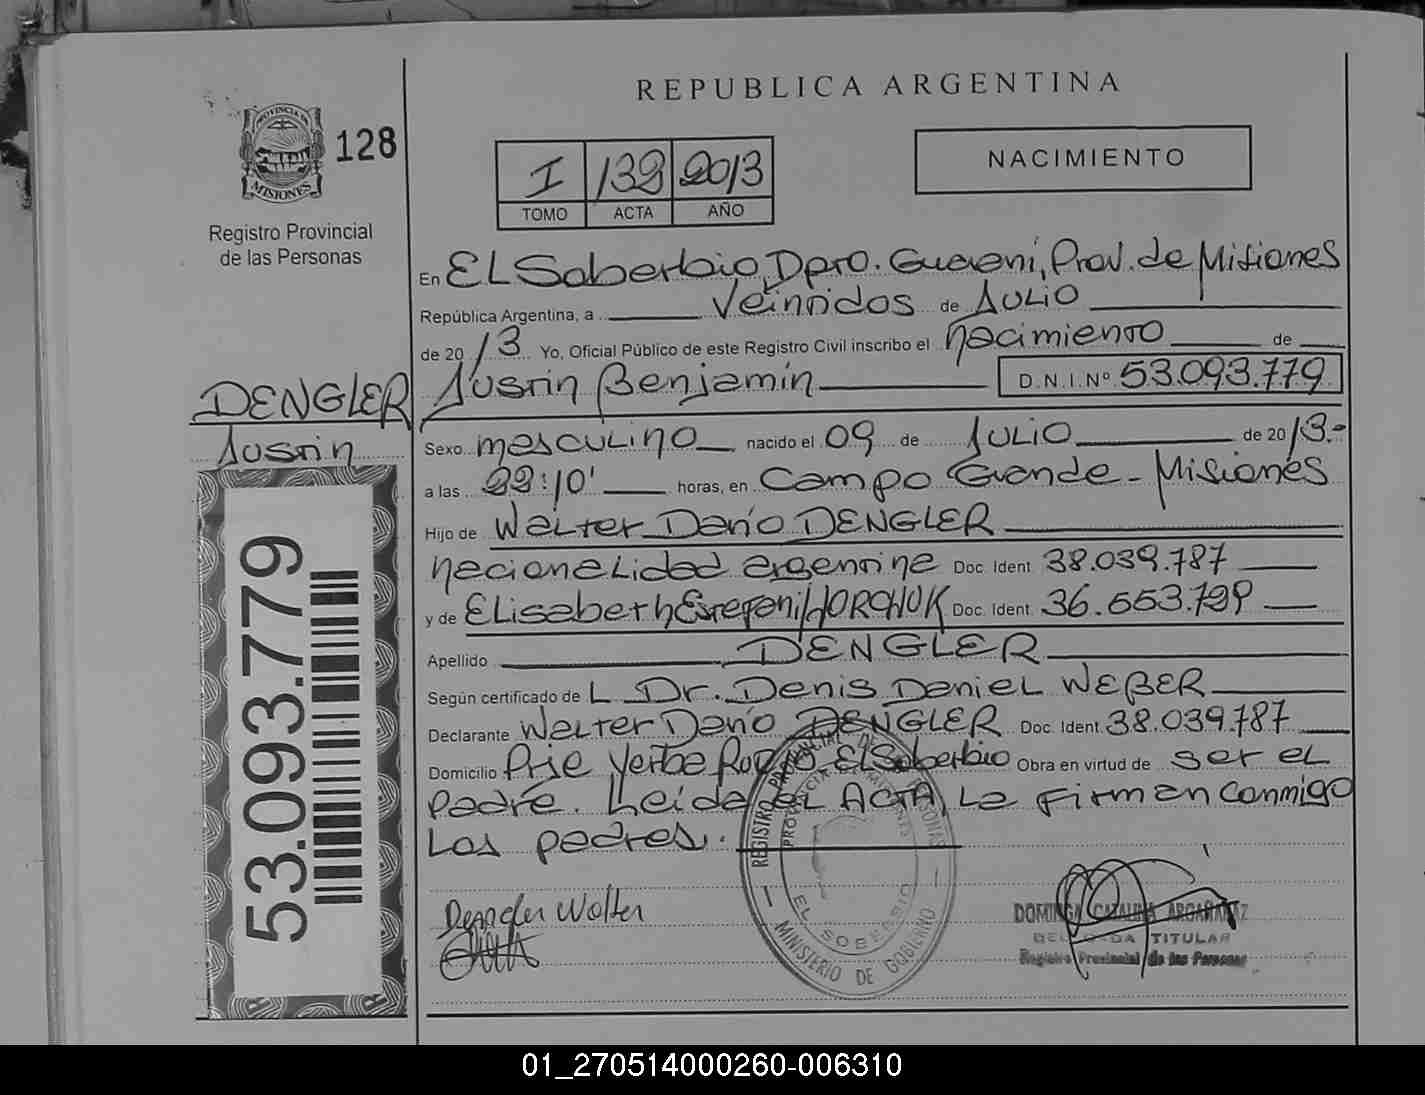 REPUBLICA ARGENTINA
PROVINCIA DE
MISIONES
128
Registro Provincial
de las Personas
I 132 2013
TOMO ACTA AÑO
NACIMIENTO
En El Soberbio, Dpto. Guaraní, Prov. de Misiones
República Argentina, a Veintidos de Julio
de 20 13 Yo, Oficial Público de este Registro Civil inscribo el nacimiento de
Justin Benjamín D.N.I.Nº 53.093.779
DENGLER
Justin
Sexo masculino nacido el 09 de Julio de 20 13.-
a las 22:10' horas, en Campo Grande - Misiones
Hijo de Walter Darío DENGLER
nacionalidad argentina Doc. Ident. 38.039.787
y de Elisabeth Estefani HORCHUK Doc. Ident. 36.553.
Apellido DENGLER
Según certificado de L Dr. Denis Daniel WEBER
Declarante Walter Darío DENGLER Doc. Ident. 38.039.787
Domicilio Pje Yerba El Soberbio Obra en virtud de ser el
padre. Leida el ACTA, La firman conmigo
Los padres.
53.093.779
Dengler Walter
REGISTRO PROVINCIAL DE LAS PERSONAS
PROVINCIA DE MISIONES
EL SOBERBIO
MINISTERIO DE GOBIERNO
DOMINGA CATALINA ARGAÑARAZ
DELEGADA TITULAR
Registro Provincial de las Personas
01_270514000260-006310